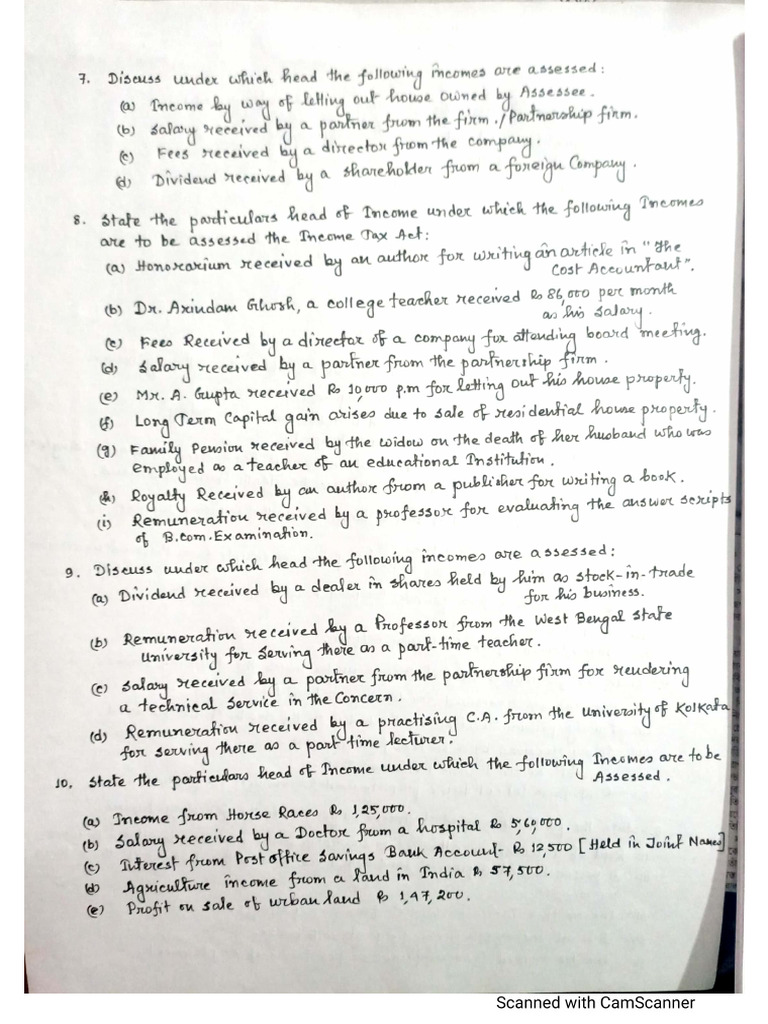 7. Discuss under which head the following incomes are assessed:
(a) Income by way of letting out house owned by Assessee.
(b) Salary received by a partner from the firm./Partnership firm.
(c) Fees received by a director from the company.
(d) Dividend received by a shareholder from a foreign Company.
8. State the particulars head of Income under which the following Incomes
are to be assessed the Income Tax Act:
(a) Honorarium received by an author for writing an article in "The
Cost Accountant".
(b) Dr. Arindam Ghosh, a college teacher received Rs 86,000 per month
as his salary.
(c) Fees Received by a director of a company for attending board meeting.
(d) Salary received by a partner from the partnership firm.
(e) Mr. A. Gupta received Rs 10,000 p.m for letting out his house property.
(f) Long Term Capital gain arises due to sale of residential house property.
(g) Family Pension received by the widow on the death of her husband who was
employed as a teacher of an educational Institution.
(h) Royalty Received by an author from a publisher for writing a book.
(i) Remuneration received by a professor for evaluating the answer scripts
of B.Com. Examination.
9. Discuss under which head the following incomes are assessed:
(a) Dividend received by a dealer in shares held by him as stock-in-trade
for his business.
(b) Remuneration received by a Professor from the West Bengal State
University for serving there as a part-time teacher.
(c) Salary received by a partner from the partnership firm for rendering
a technical service in the Concern.
(d) Remuneration received by a practising C.A. from the University of Kolkata
for serving there as a part time lecturer.
10. State the particulars head of Income under which the following Incomes are to be
Assessed.
(a) Income from Horse Races Rs 1,25,000.
(b) Salary received by a Doctor from a hospital Rs 5,60,000.
(c) Interest from Post office Savings Bank Account- Rs 12,500 [Held in Joint Names]
(d) Agriculture income from a land in India Rs 57,500.
(e) Profit on sale of urban land Rs 1,47,200.
Scanned with CamScanner